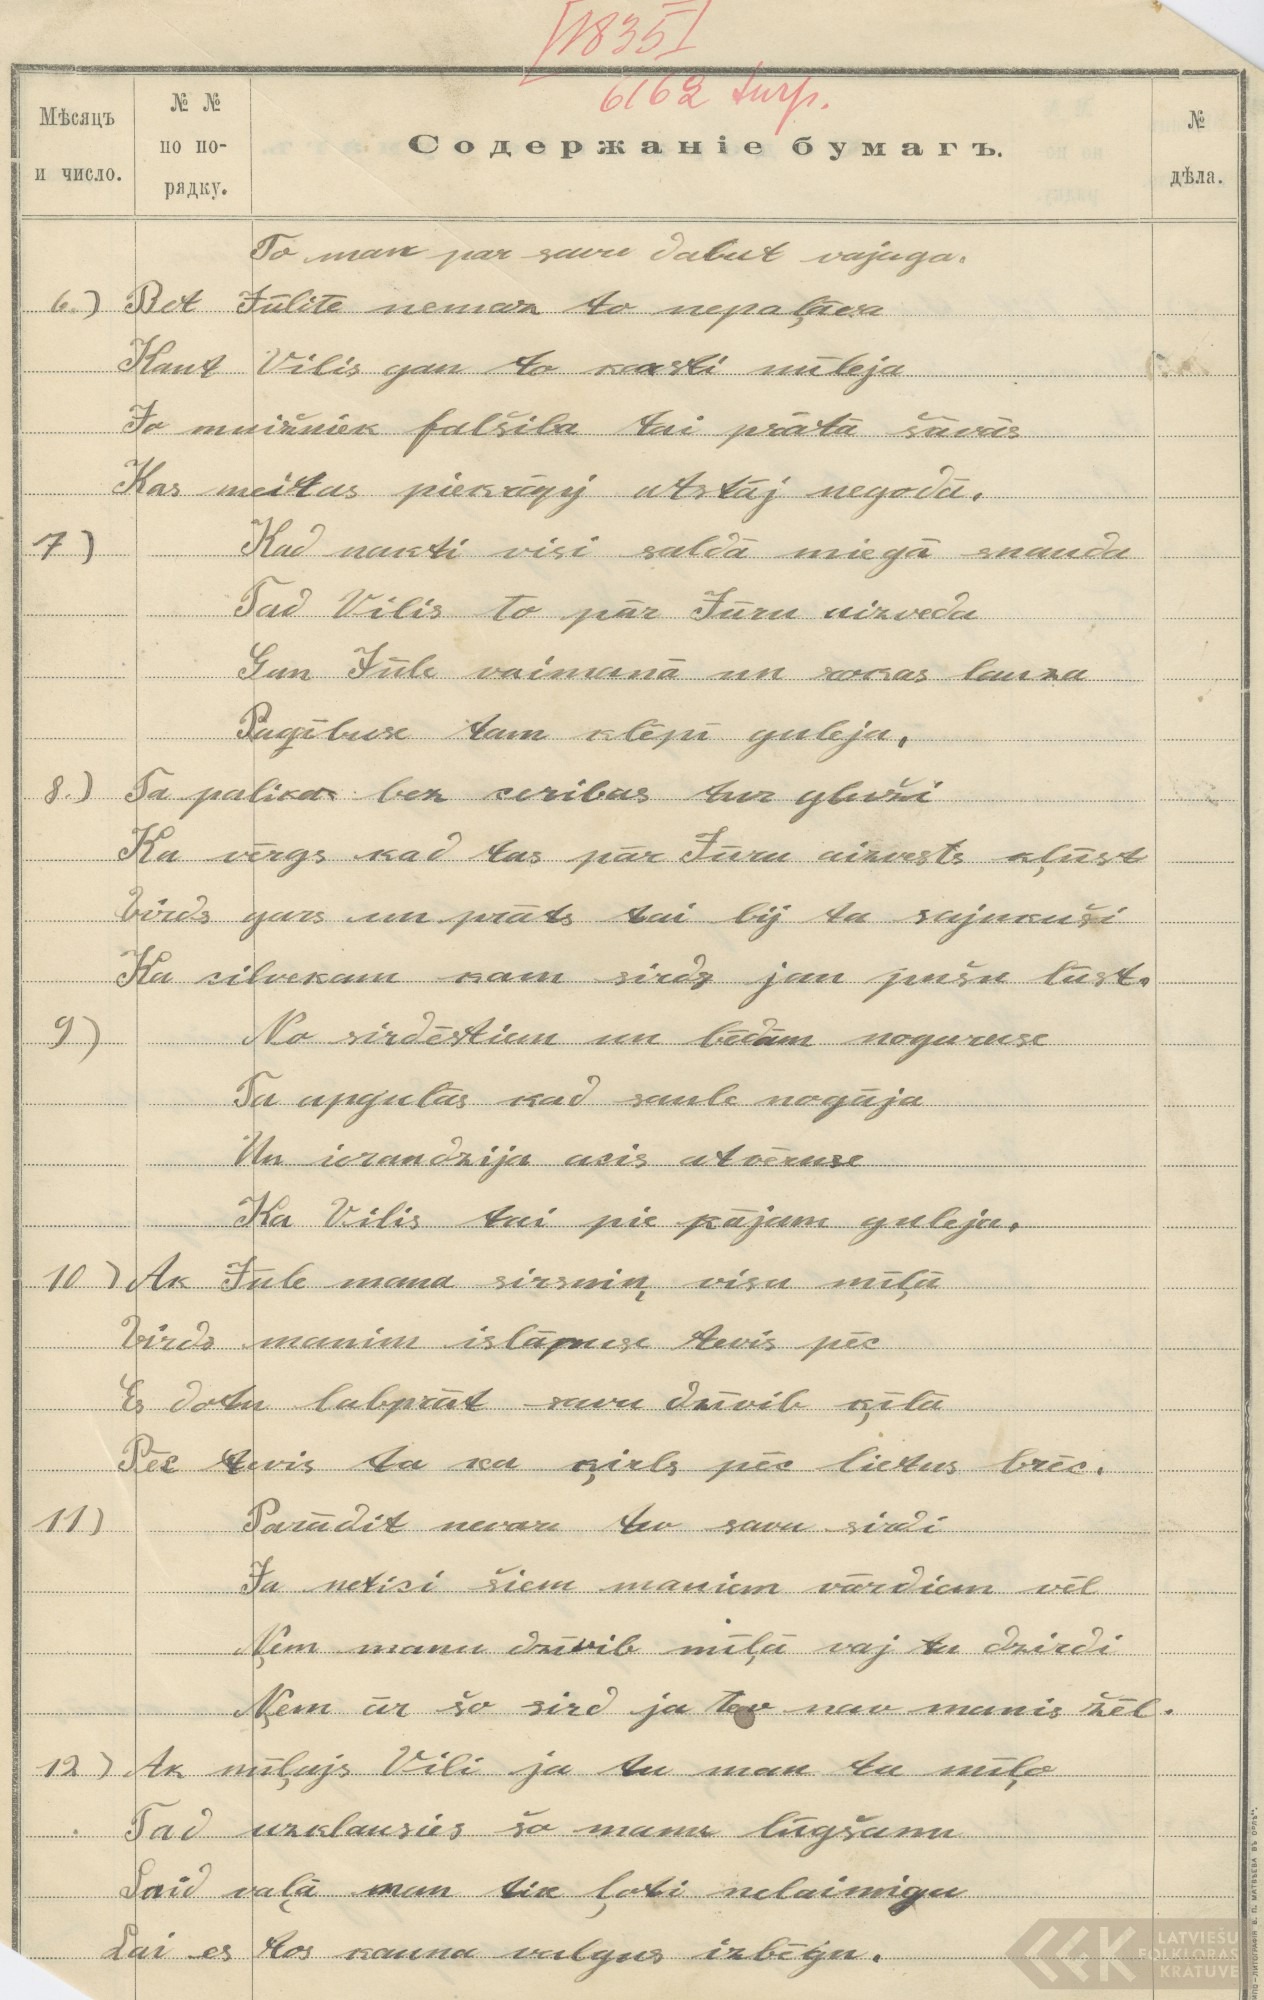 [1835]
6162 turp.
Мѣсяцъ и число.
№ № по порядку.
Содержаніе бумагъ.
№ дѣла.
To man par savu dabut vajaga.
6.) Bet Jūlite nemaz to nepaļāva
Kaut Vilis gan to karsti mīleja
Jo muižniek falšiba tai prātā šāvās
Kas meitas piekrāpj atstāj negodā.
7) Kad nakti visi saldā miegā snauda
Tad Vilis to pār Jūru aizveda
Gan Jūle vaimanā un rokas lauza
Paģībuse tam klēpī guleja.
8.) Ta palika bez ceribas tur gluži
Ka vērgs kad tas pār Jūru aizvests kļūst
Sirds gars un prāts tai bij ta sajukuši
Ka cilvekam kam sirds jau pušu lūst.
9) No sirdēstiem un bēdām noguruse
Ta apgulās kad saule nogāja
Un ieraudzija acis atvēruse
Ka Vilis tai pie kājam guleja.
10) Ak Jūle mana sirsniņ visu mīļā
Sirds manim islāpuse tevis pēc
Es dotu labprāt savu dzīvib ķīlā
Pēc tevis ta ka ķirls pēc lietus brēc.
11) Parādit nevaru tev savu sirdi
Ja netici šiem maniem vārdiem vēl
Ņem manu dzīvib mīļā vaj tu dzirdi
Ņem ār šo sird ja tev nav manis žēl.
12) Ak mīļajs Vili ja tu man ta mīļo
Tad uzklausies šo manu lūgšanu
Laid vaļā man tik ļoti nelaimigu
Lai es tos kauna valgus izbēgu.
LATVIEŠU
FOLKLORAS
KRĀTUVE